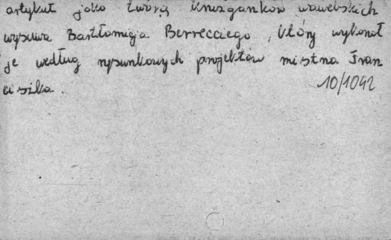 artykuł jako twórcę krużganków wawelskich
wysuwa Bartłomieja Berrecciego, który wykonał
je według rysunkowych projektów mistrza Fran
ciszka.
10/1092